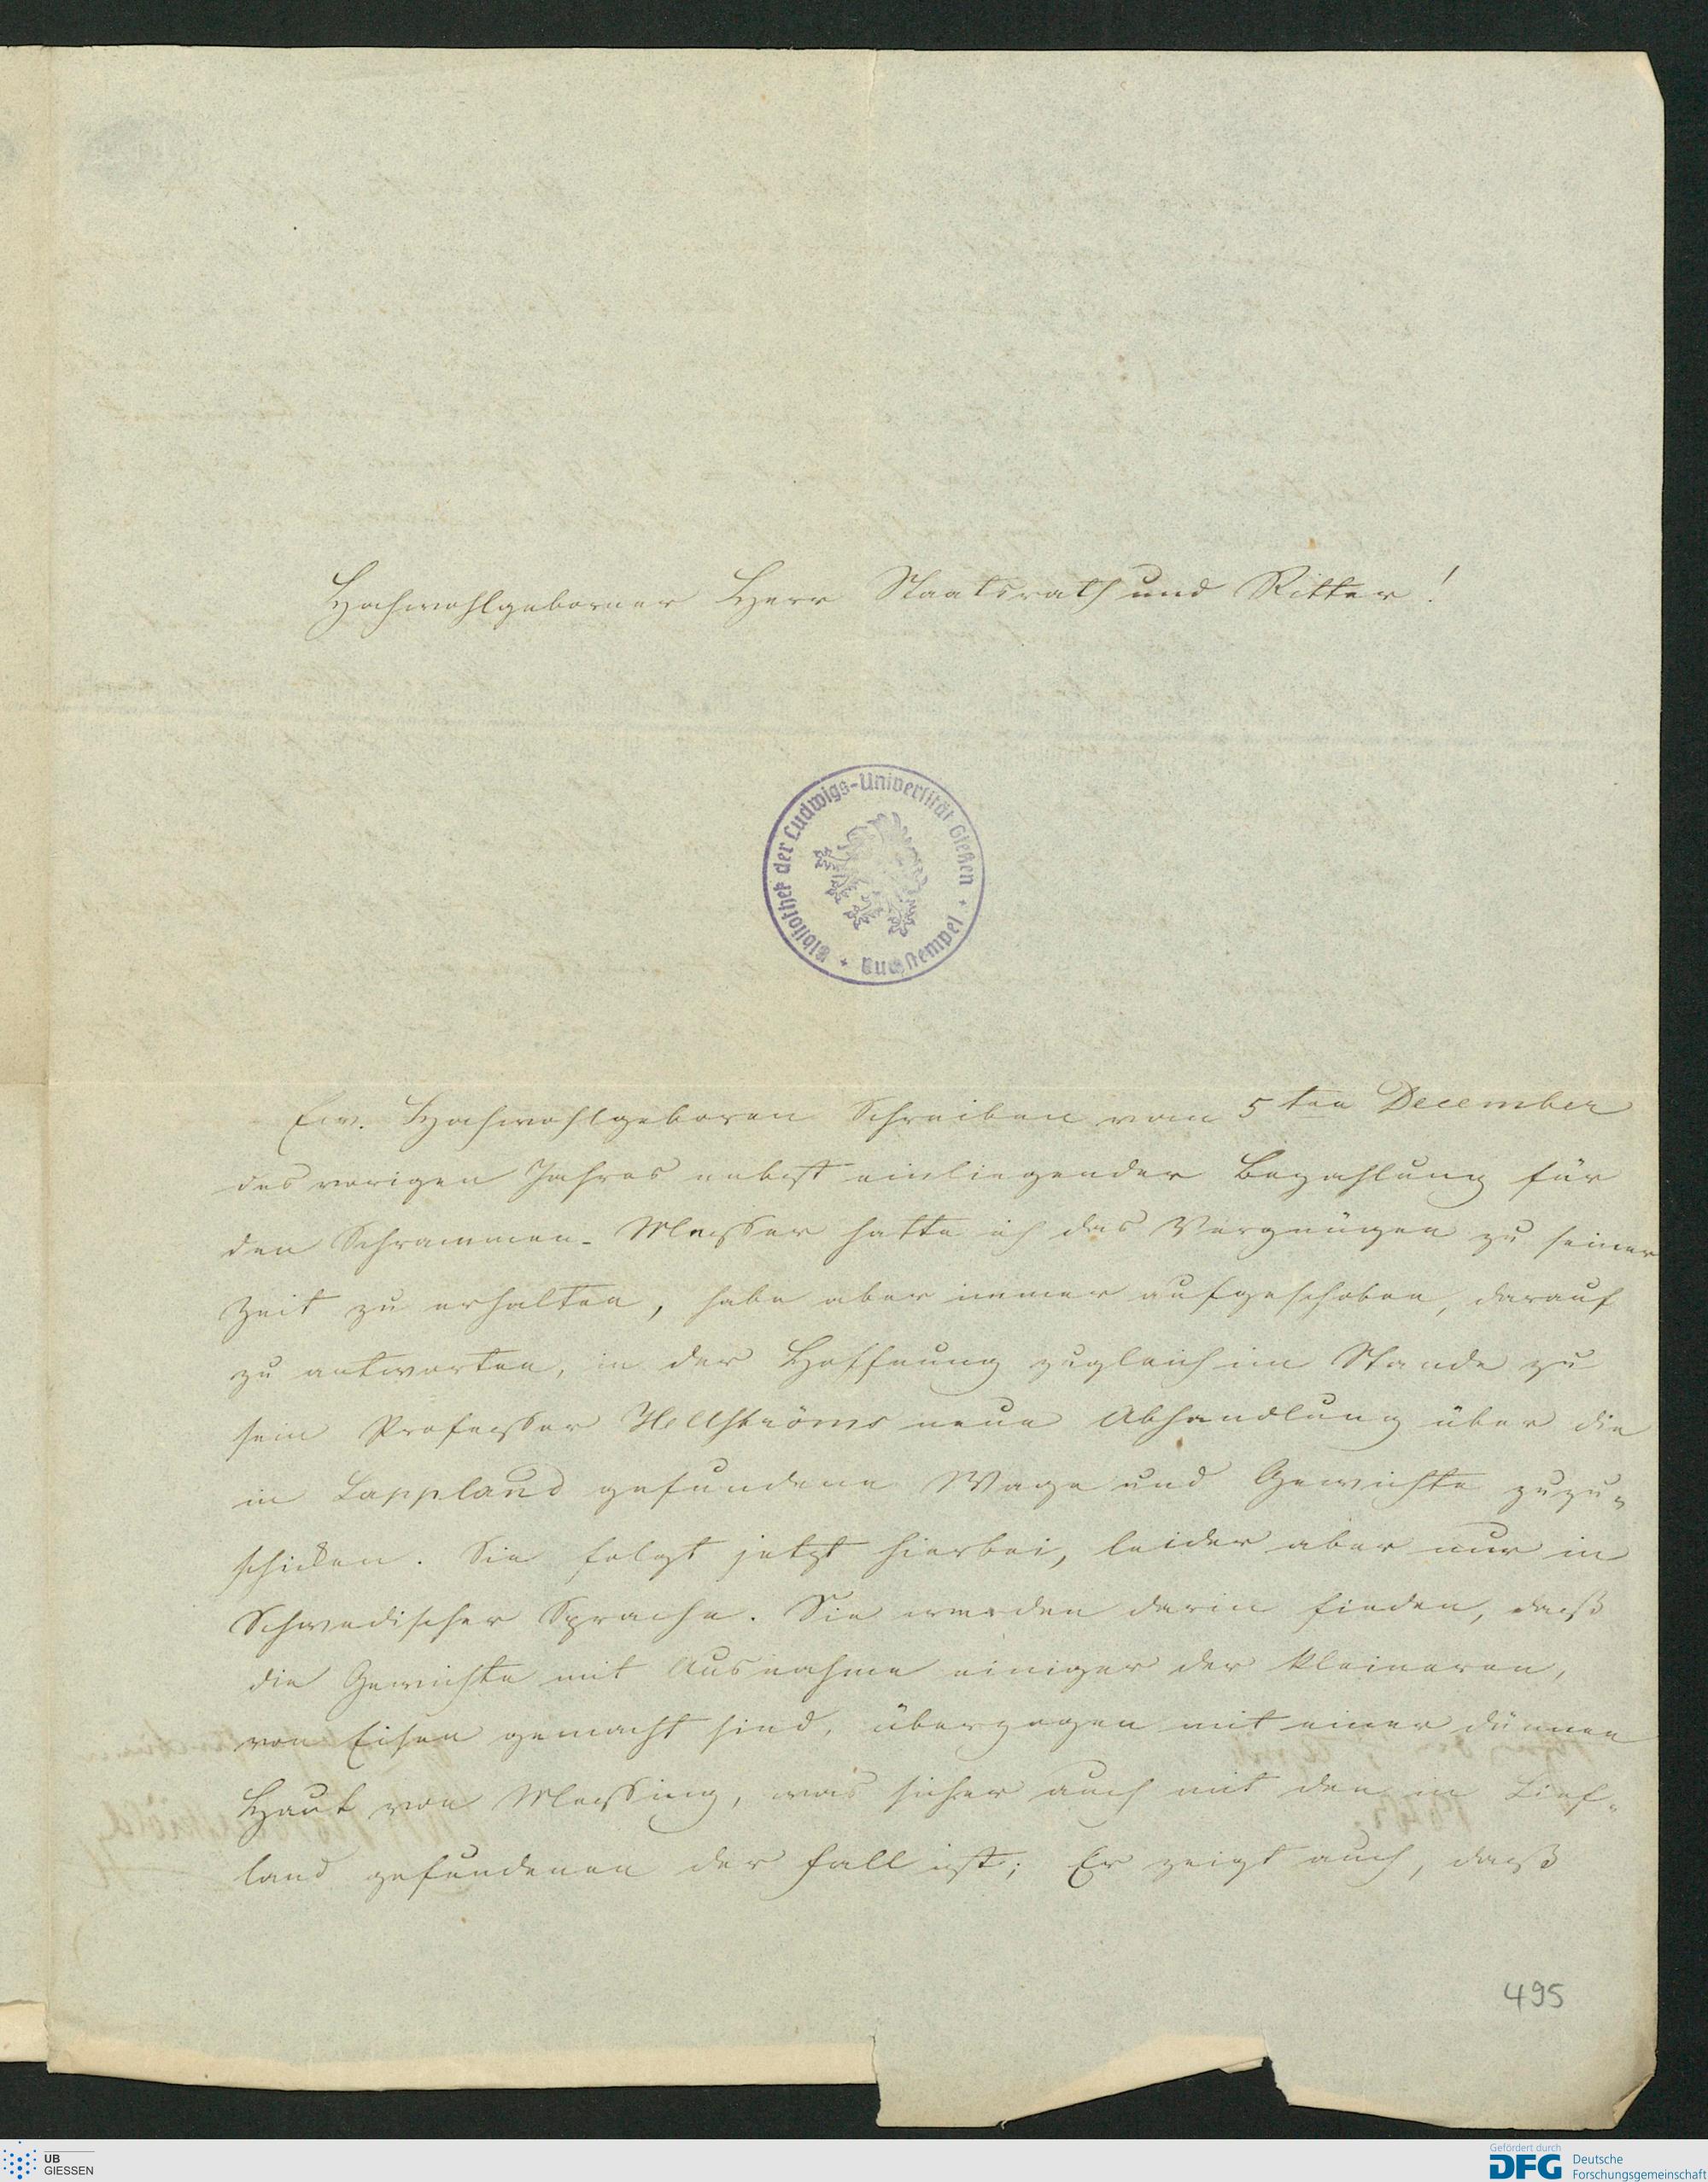 Hochwohlgeborner Herr Staatsrath und Ritter!
Bibliothek der Ludwigs-Universität Gießen + Buchstempel +
Ew. Hochwohlgeboren Schreiben vom 5ten December
des vorigen Jahres nebst einliegender Bezahlung für
den Schrammen-Messer hatte ich das Vergnügen zu seiner
Zeit zu erhalten, habe aber immer aufgeschoben, darauf
zu antworten, in der Hoffnung zugleich im Stande zu
sein Professor Hellströms neue Abhandlung über die
in Lappland gefundene Wage und Gewichte zuzu-
schicken. Sie folgt jetzt hierbei, leider aber nur in
Schwedischer Sprache. Sie werden darin finden, daß
die Gewichte mit Ausnahme einiger der kleineren,
von Eisen gemacht sind, überzogen mit einer dünnen
Haut von Messing, was sicher auch mit den in Lief-
land gefundenen der Fall ist; Er zeigt auch, daß
495
UB
GIESSEN
Gefördert durch
DFG Deutsche
Forschungsgemeinschaft